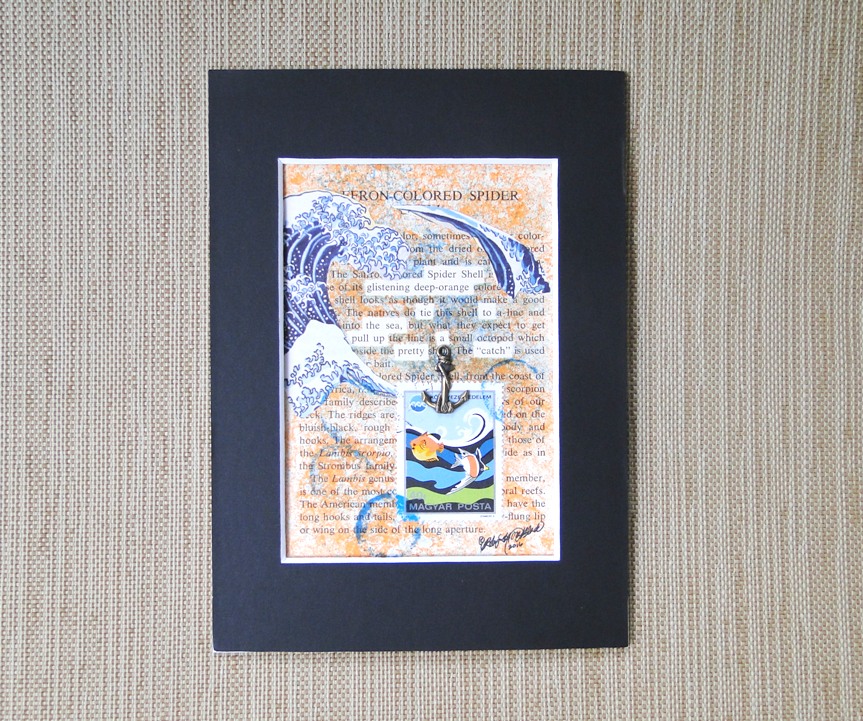 FRON-COLORED SPIDER
lor, sometimes color-
om the dried ored
plant and is cal
The Saffro ored Spider Shell
e of its glistening deep-orange colore
shell looks as though it would make a good
The natives do tie this shell to a line and
into the sea, but what they expect to get
pull up the line is a small octopod which
nside the pretty The "catch" is used
r bait.
lored Spider Shell, from the coast of
rica, scorpion
family describe s of our
eck. The ridges are d on the
bluish-black, rough body and
hooks. The arrangem those of
the Lambis scorpio, ide as in
the Strombus family.
The Lambis genus member,
is one of the most co oral reefs.
The American memb have the
long hooks and tails, -flung lip
or wing on the side of the long aperture.
EDELEM
MAGYAR POSTA
2016